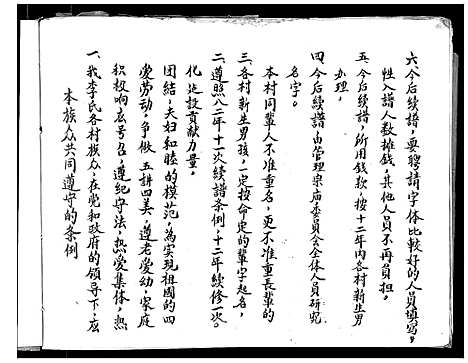 本族众共同遵守的条例
一、我李氏各村族众,在党和政府的领导下,应
积极响应号召,遵纪守法,热爱集体,热
爱劳动,争做五讲四美,遵老爱幼,家庭
团结,夫妇和睦的模范,为实现祖国的四
化建设贡献力量。
二、遵照八二年十一次续谱条例,十二年续修一次。
三、各村新生男孩,一定按命定的辈字起名,
本村同辈人不准重名,更不准重長辈的
名字。
四、今后续谱,由管理宗庙委员会全体人员研究
办理。
五、今后续谱,所用钱款,按十二年内各村新生男
性入谱人数摊钱,其他人员不再负担。
六、今后续谱,要聘请字体比較好的人员填写,